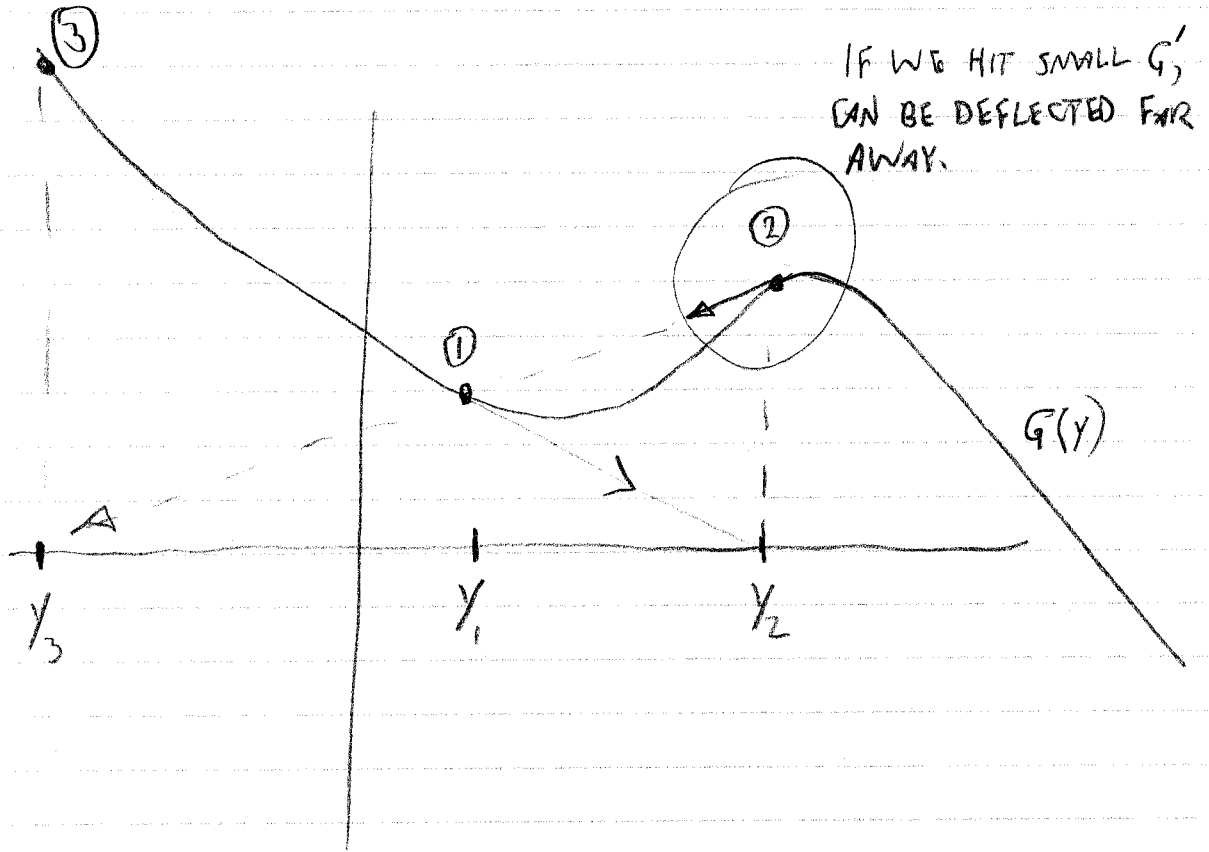 ③
IF WE HIT SMALL G',
CAN BE DEFLECTED FAR
AWAY.
②
①
G(Y)
Y₃
Y₁
Y₂